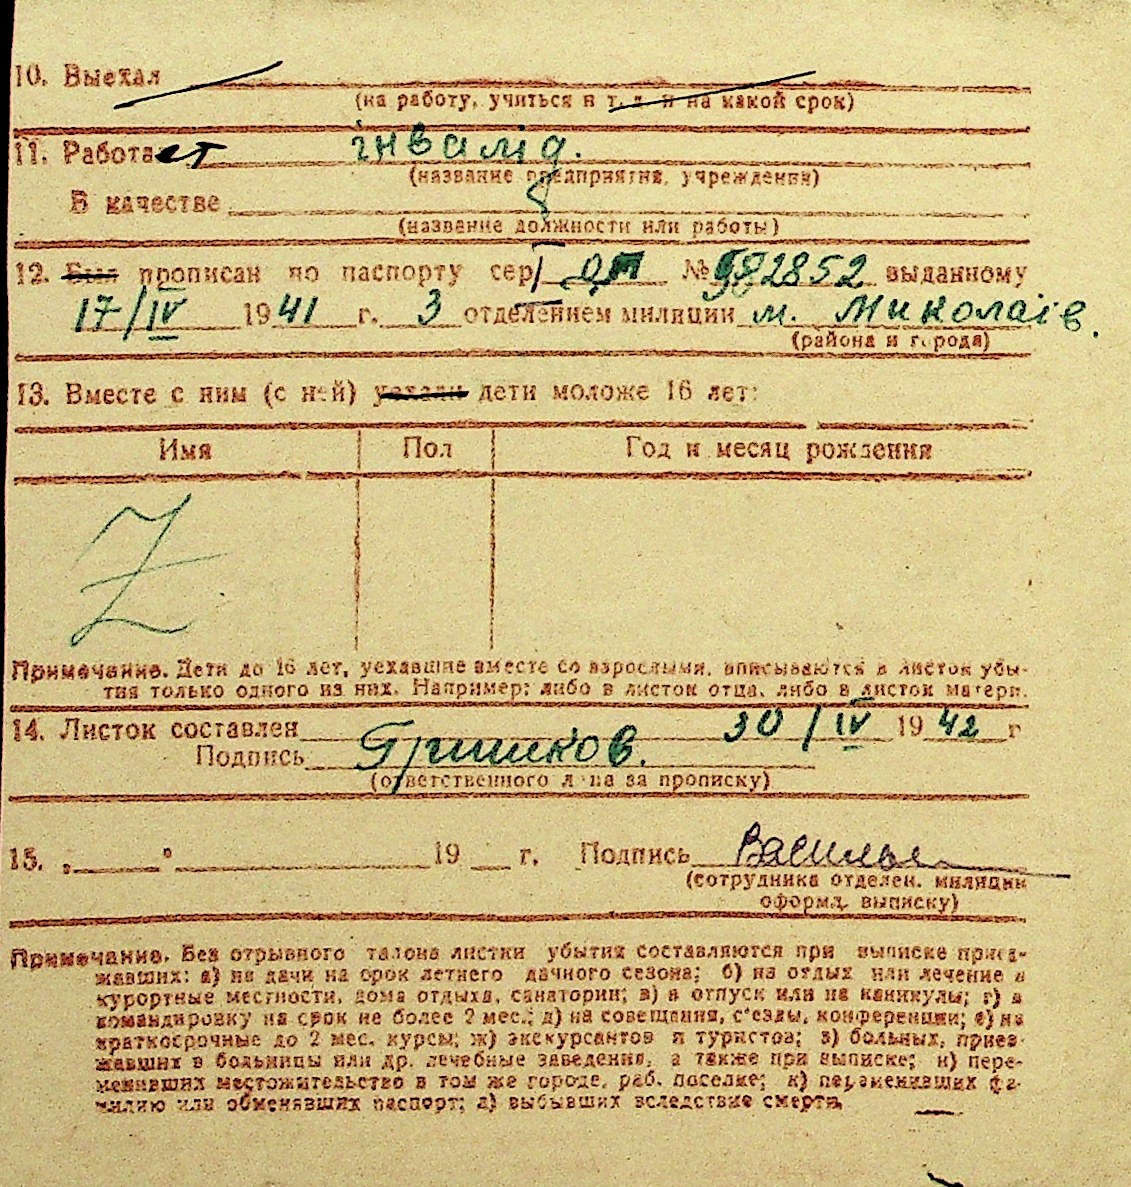 10. Выехал
(на работу, учиться и т. д. и на какой срок)
11. Работает інвалід.
(название предприятия, учреждения)
В качестве
(название должности или работы)
12. Был прописан по паспорту сер. № 982852 выданному
17/IV 1941 г. 3 отделением милиции м. Миколаїв.
(района и города)
13. Вместе с ним (с ней) уехали дети моложе 16 лет:
Имя Пол Год и месяц рождения
Z
Примечание. Дети до 16 лет, уехавшие вместе со взрослыми, вписываются в листок убы-
тия только одного из них. Например: либо в листок отца, либо в листок матери.
14. Листок составлен 30/IV 1942 г
Подпись Гришков.
(ответственного лица за прописку)
15. „ " 19 г. Подпись Василье
(сотрудника отделен. милиции
оформл. выписку)
Примечание. Без отрывного талона листки убытия составляются при выписке приез-
жавших: а) на дачи на срок летнего дачного сезона; б) на отдых или лечение в
курортные местности, дома отдыха, санатории; в) в отпуск или на каникулы; г) в
командировку на срок не более 2 мес.; д) на совещания, с'езды, конференции; е) на
краткосрочные до 2 мес. курсы; ж) экскурсантов и туристов; з) больных, приез-
жавших в больницы или др. лечебные заведения, а также при выписке; и) пере-
менивших местожительство в том же городе, раб. поселке; к) переменивших фа-
милию или обменявших паспорт; л) выбывших вследствие смерти.